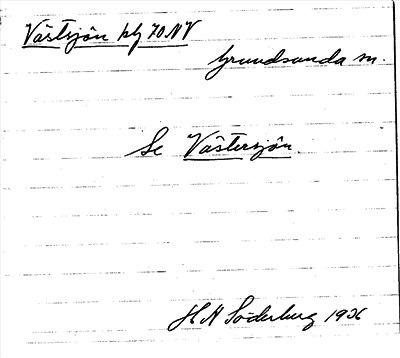 Västsjön blj 70 NV
Grundsunda sn.
Se Västersjön.
H A Söderberg 1936